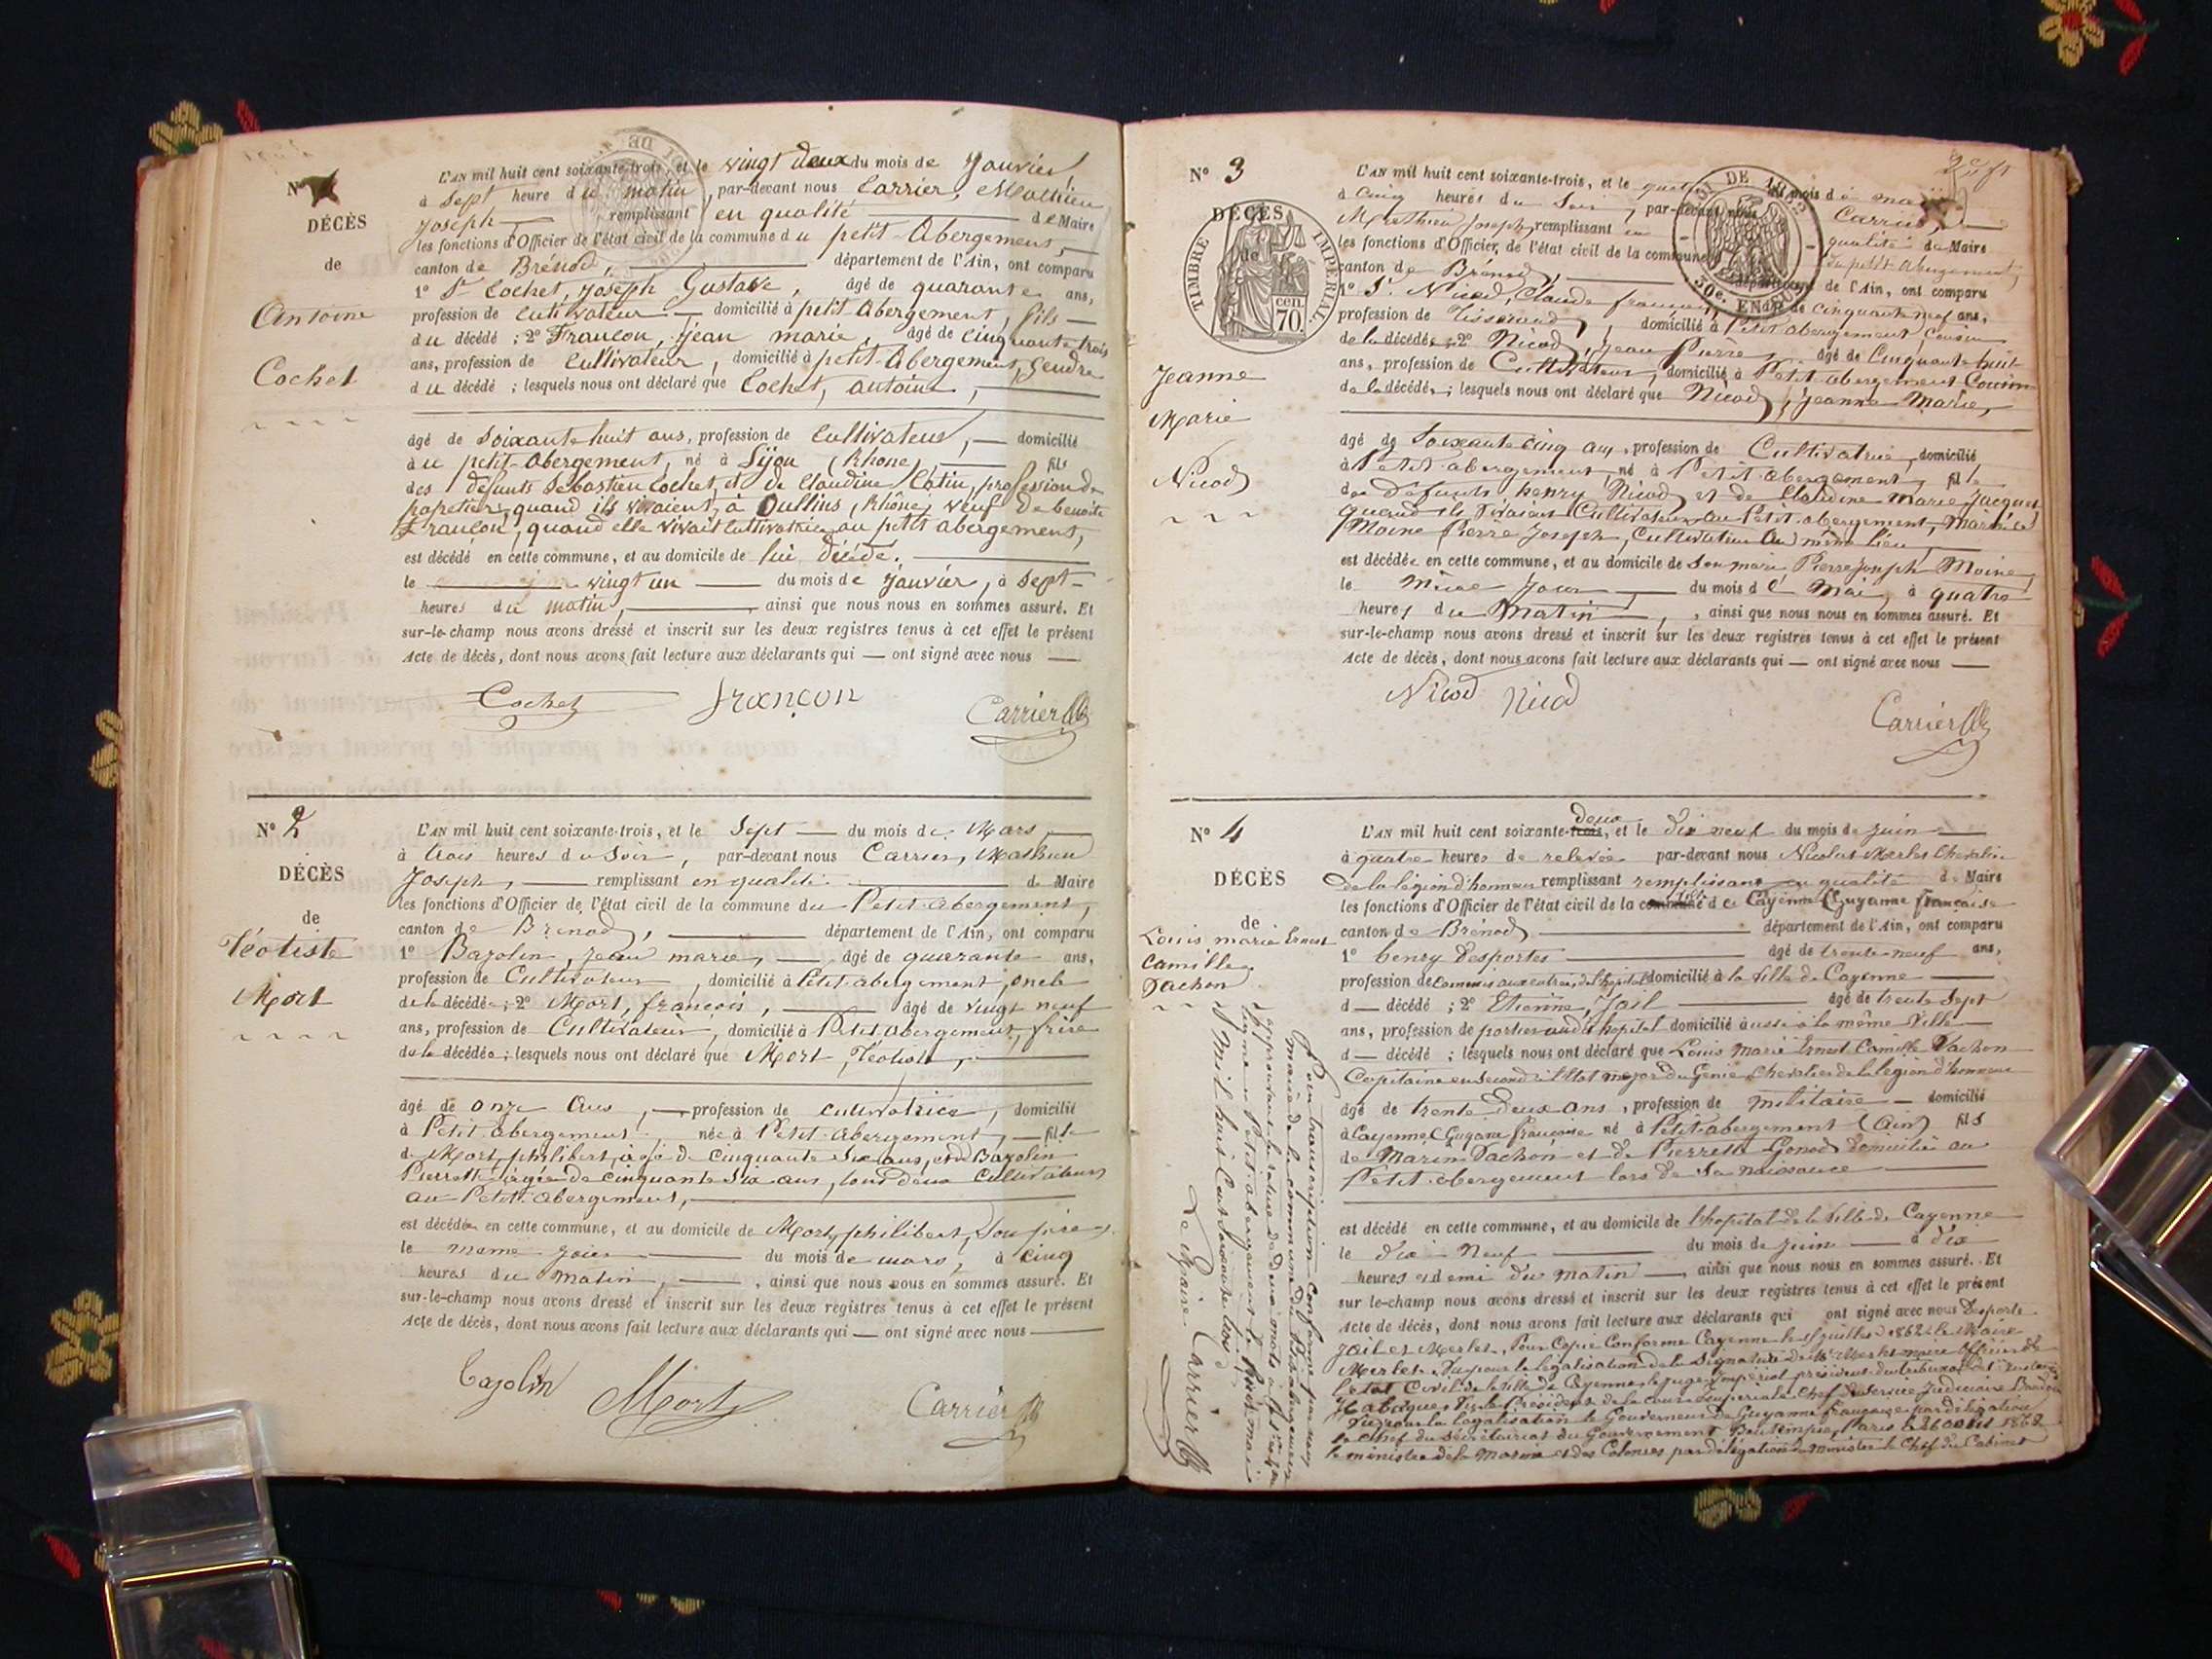 N°
DÉCÈS
de
Antoine
Cochet
L'AN mil huit cent soixante-trois, et le vingt deux du mois de Janvier,
à Sept heure du matin, par-devant nous Carrier, Mathieu
Joseph remplissant en qualité de Maire
les fonctions d'Officier de l'état civil de la commune du petit-Abergement,
canton de Brénod, département de l'Ain, ont comparu
1° Sr Cochet, Joseph Gustave, âgé de quarante ans,
profession de cultivateur domicilié à petit Abergement, fils
du décédé ; 2° Françon, jean marie, âgé de cinquante trois
ans, profession de cultivateur, domicilié à petit-Abergement, gendre
du décédé ; lesquels nous ont déclaré que Cochet, antoine,
âgé de Soixante huit ans, profession de cultivateur, domicilié
au petit-Abergement, né à Lyon (Rhone), fils
des défunts Sébastien Cochet, et de Claudine Catin, profession de
papetiers quand ils vivaient, à Oullins, (Rhône) veuf De benoite
Françon, quand elle vivait cultivatrice au petit abergement,
est décédé en cette commune, et au domicile de lui décédé.
le vingt un du mois de Janvier, à Sept
heures du matin, ainsi que nous nous en sommes assuré. Et
sur-le-champ nous avons dressé et inscrit sur les deux registres tenus à cet effet le présent
Acte de décès, dont nous avons fait lecture aux déclarants qui — ont signé avec nous —
Cochet françon Carrier
N° 2
DÉCÈS
de
Téotiste
Mort
L'AN mil huit cent soixante-trois, et le Sept du mois de Mars
à trois heures du Soir, par-devant nous Carrier, Mathieu
Joseph, remplissant en qualité de Maire
les fonctions d'Officier de l'état civil de la commune du Petit-Abergement,
canton de Brénod, département de l'Ain, ont comparu
1° Bazolin, jean marie, âgé de quarante ans,
profession de Cultivateur, domicilié à Petit abergement, oncle
de la décédée ; 2° Mort, françois, âgé de vingt neuf
ans, profession de Cultivateur, domicilié à Petit-abergement, frère
de la décédée ; lesquels nous ont déclaré que Mort, Téotiste,
âgé de onze ans, profession de cultivatrice, domicilié
à Petit abergement née à Petit-Abergement, fille
de Mort, philibert, âgé de cinquante Six ans, et de Bazolin
Pierrette âgée de cinquante Six ans, tous deux cultivateurs
au Petit-abergement,
est décédée en cette commune, et au domicile de Mort, philibert, Son père,
le même jour du mois de mars, à cinq
heures du matin, ainsi que nous nous en sommes assuré. Et
sur-le-champ nous avons dressé et inscrit sur les deux registres tenus à cet effet le présent
Acte de décès, dont nous avons fait lecture aux déclarants qui — ont signé avec nous
Bazolin Mort Carrier
N° 3
DÉCÈS
de
TIMBRE IMPÉRIAL
cen.
70.
Jeanne
Marie
Nicod
L'AN mil huit cent soixante-trois, et le du mois de mai
à cinq heures du Soir, par-devant nous Carrier,
Mathieu Joseph, remplissant en qualité de Maire
les fonctions d'Officier de l'état civil de la commune du petit-abergement,
canton de Brénod, département de l'Ain, ont comparu
1° Sr Nicod, Claude françois, âgé de cinquante neuf ans,
profession de Tisserand, domicilié à Petit abergement Cousin
de la décédée ; 2° Nicod, Jean Pierre, âgé de Cinquante huit
ans, profession de Cultivateur, domicilié à Petit-abergement Cousin
de la décédée ; lesquels nous ont déclaré que Nicod, Jeanne Marie,
âgé de Soixante cinq ans, profession de Cultivatrice, domicilié
à Petit abergement, né à Petit-Abergement, fille
des Défunts henry Nicod et de Claudine Marie Jacquet,
quand ils vivaient Cultivateurs au Petit abergement, Mariée à
Moine Pierre Joseph, Cultivateur au même lieu
est décédée en cette commune, et au domicile de Son mari Pierre Joseph Moine,
le Même Jour du mois de Mai, à quatre
heures du Matin, ainsi que nous nous en sommes assuré. Et
sur-le-champ nous avons dressé et inscrit sur les deux registres tenus à cet effet le présent
Acte de décès, dont nous avons fait lecture aux déclarants qui — ont signé avec nous —
Nicod Nicod Carrier
N° 4
DÉCÈS
de
Louis marie Ernest
Camille
Vachon
L'AN mil huit cent soixante-trois deux, et le dix neuf du mois de Juin
à quatre heures de relevée par-devant nous Nicolas Merlet Chevalier
De la légion d'honneur remplissant remplissant en qualité de Maire
les fonctions d'Officier de l'état civil de la commune de Cayenne (Guyanne française
canton de Brénod département de l'Ain, ont comparu
1° henry Desportes âgé de trente-neuf ans,
profession de Commis aux entrées de l'hôpital domicilié à la ville de Cayenne
d — décédé ; 2° Etienne, Jail âgé de trente Sept
ans, profession de portier audit hopital domicilié aussi à la même Ville
d — décédé ; lesquels nous ont déclaré que Louis Marie Ernest Camille Vachon
Capitaine en Second à l'Etat major du Génie, Chevalier de la légion d'honneur
âgé de trente Deux ans, profession de militaire domicilié
à Cayenne (Guyane française né à Petit-abergement (Ain) fils
de Marin Vachon et de Pierrette Gonod Domicilié au
Petit-abergement lors de Sa naissance
est décédé en cette commune, et au domicile de l'hopital de la Ville de Cayenne
le dix-Neuf du mois de Juin à dix
heures et demi du matin, ainsi que nous nous en sommes assuré. Et
sur le-champ nous avons dressé et inscrit sur les deux registres tenus à cet effet le présent
Acte de décès, dont nous avons fait lecture aux déclarants qui ont signé avec nous Desportes
Jail et Merlet. Pour Copie Conforme Cayenne le juillet 1862 le Maire
Merlet. Vu pour la légalisation de la Signature de Mr Merlet maire officier de
l'état Civil de la Ville de Cayenne, le juge Impérial président du tribunal
le Président de la cour Impériale Chef du Service Judiciaire
Vu pour la légalisation le Gouverneur de Guyanne française par délégation
le Chef du Sécrétariat du Gouvernement Paris le 26 1862
le ministre de la Marine et des Colonies par délégation du Ministre le Chef du Cabinet
Pour transcription conforme par nous
maire de la commune du Petit abergement
approuvant la rature de Deux mots à la
ligne au Petit abergement le mai
Mil huit Cent Soixante trois
Le Maire Carrier